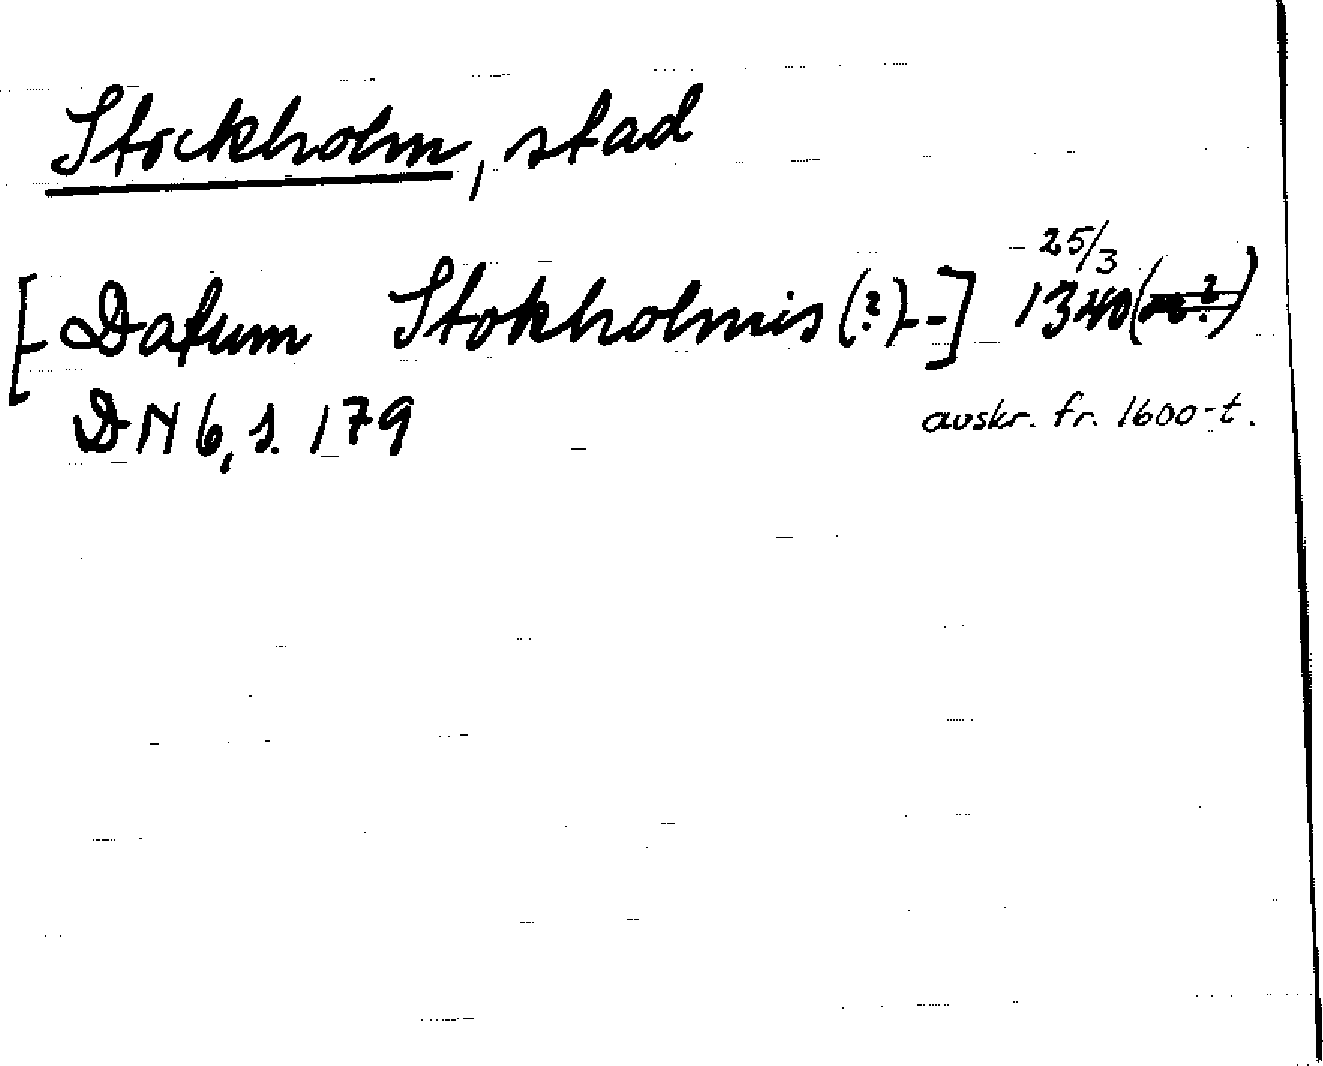 Stockholm, stad
[- Datum Stokholmis (?) - -] 25/3 1340 (?)
DN 6, s. 179
avskr. fr. 1600-t.